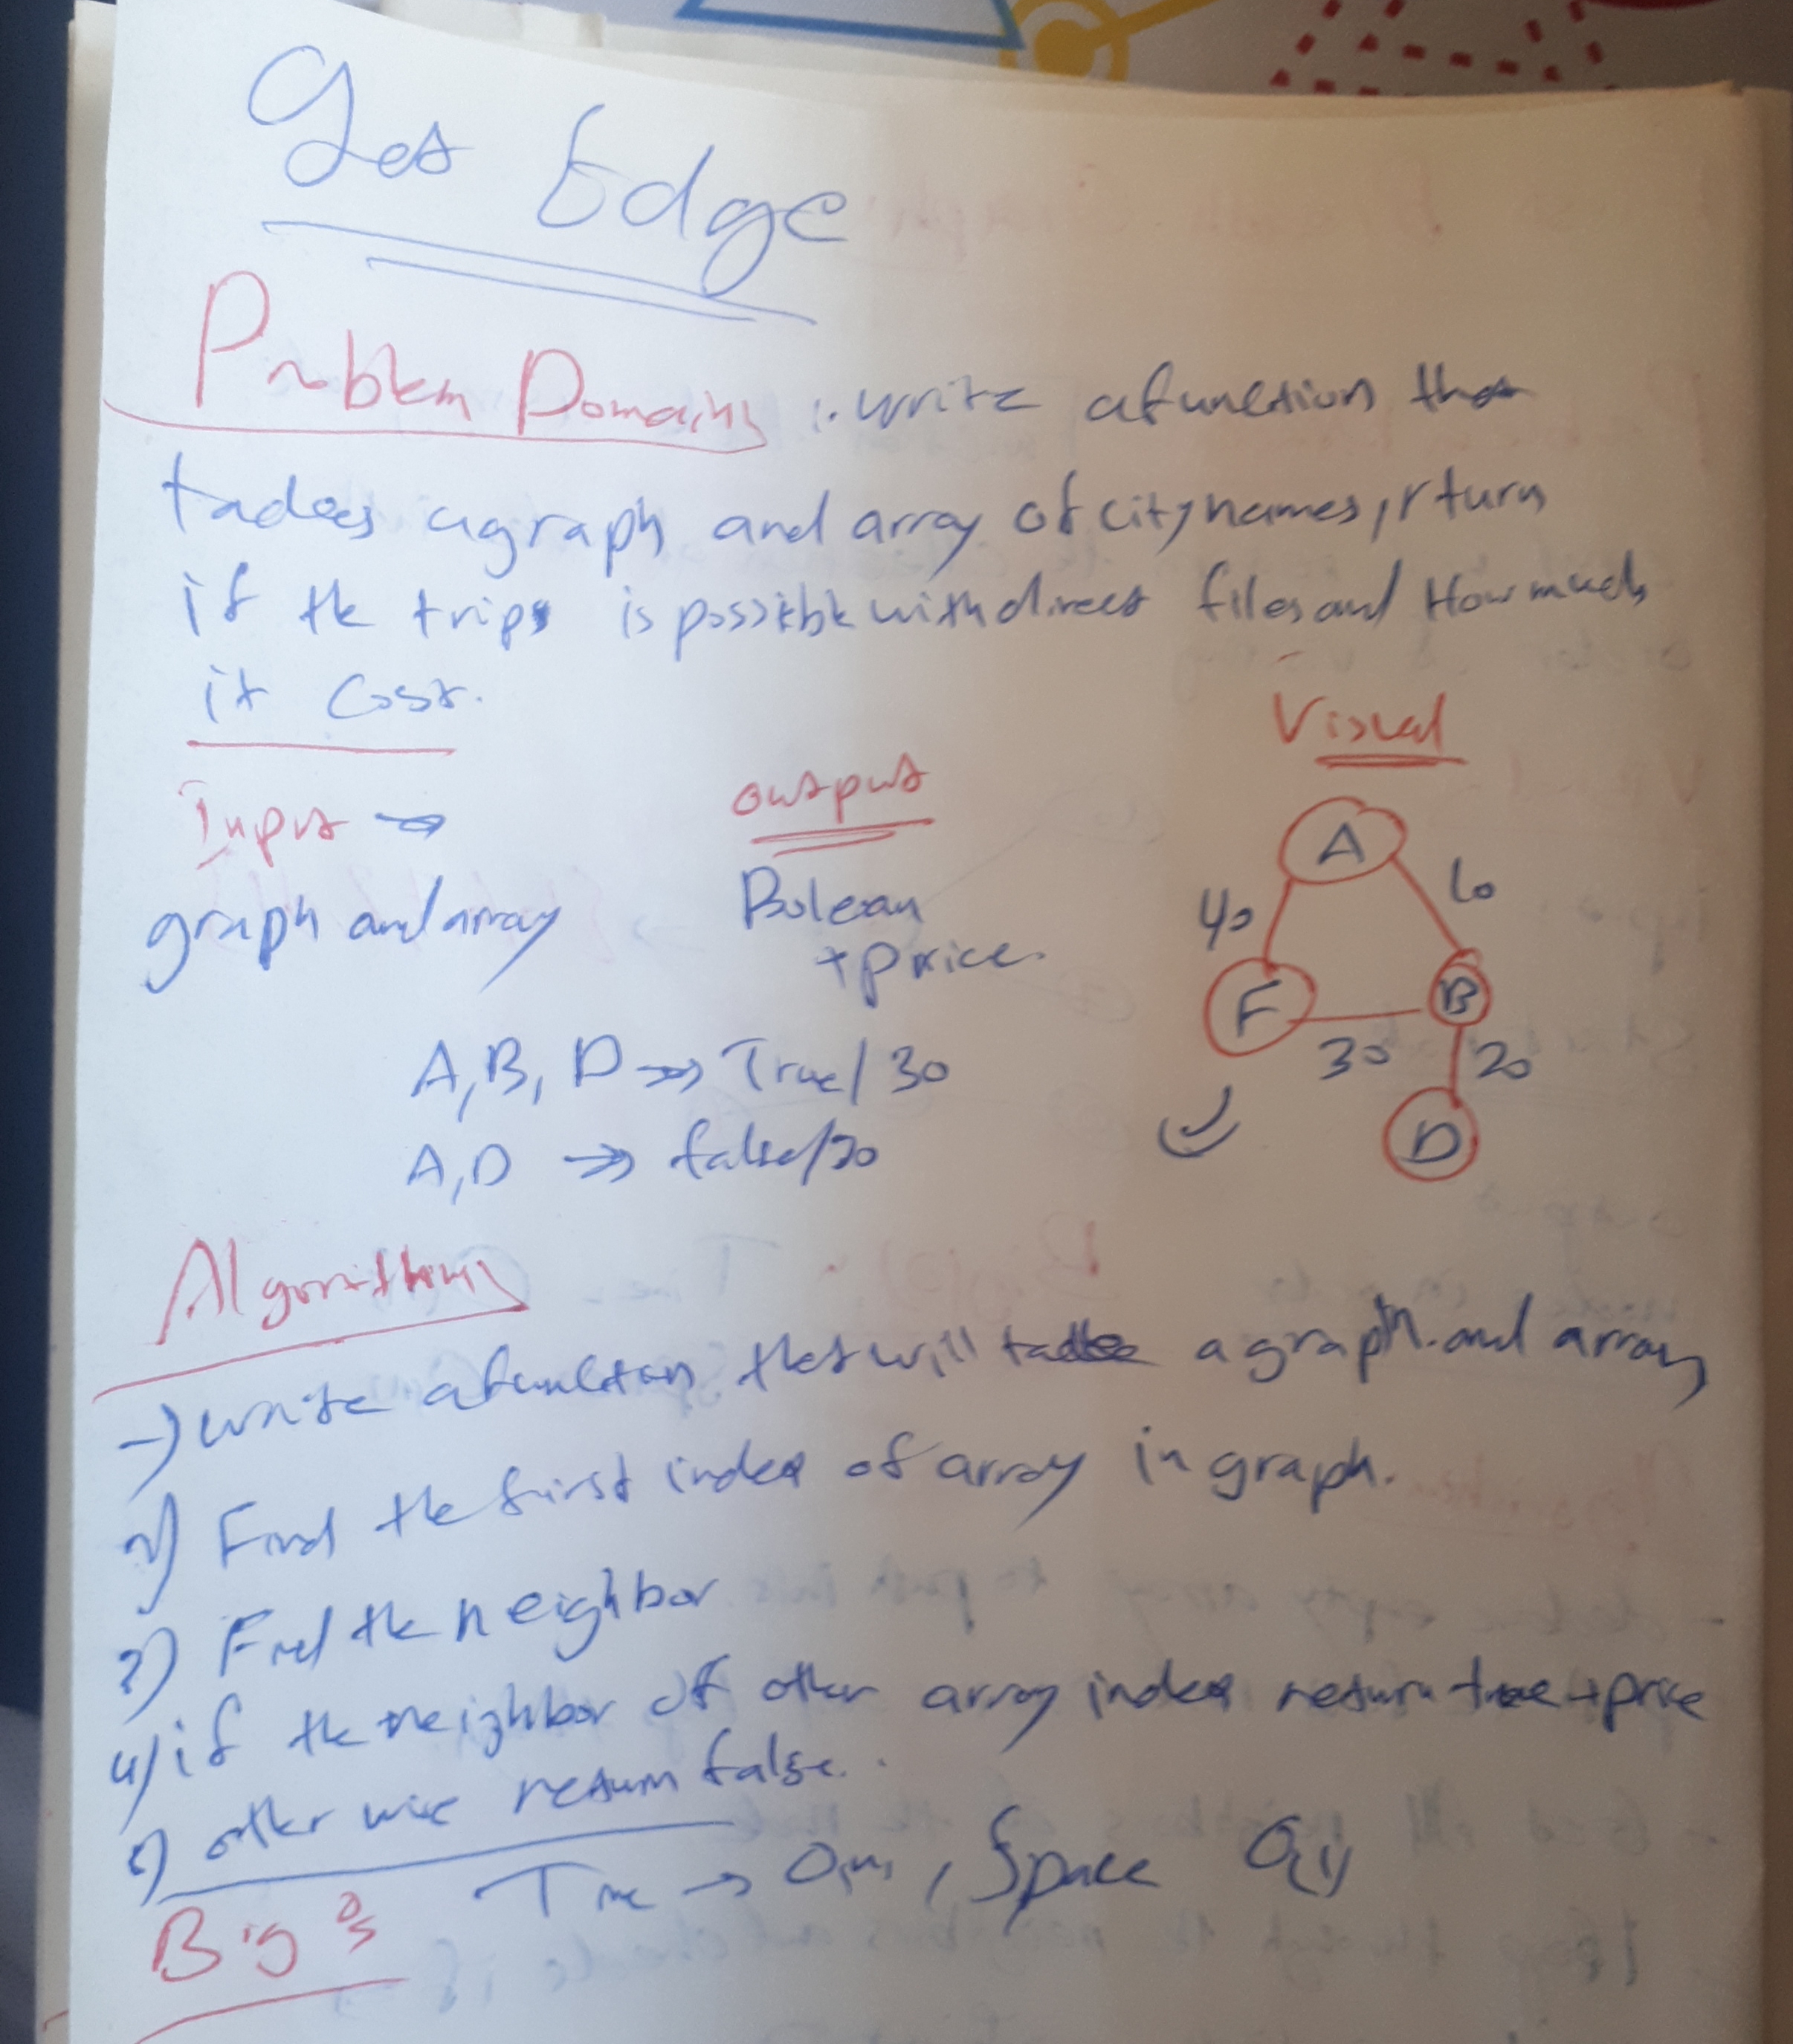 Get Edge
Problem Domain :. write a function that
takes a graph and array of city names, rturn
if the trips is possible with direct files and How much
it Cost.
Visual
Input →
output
graph and array
Bolean
+ price.
A
40
10
F
B
30
20
D
A, B, D →> True/ 30
A, D →> false/
Algorithm
-) write a function that will take a graph. and array
2) Find the first index of array in graph.
3) Find the neighbor
4) if the neighbor of other array index return true + price
5) other wise return false.
Big O's
Time → O(n), Space O(1)